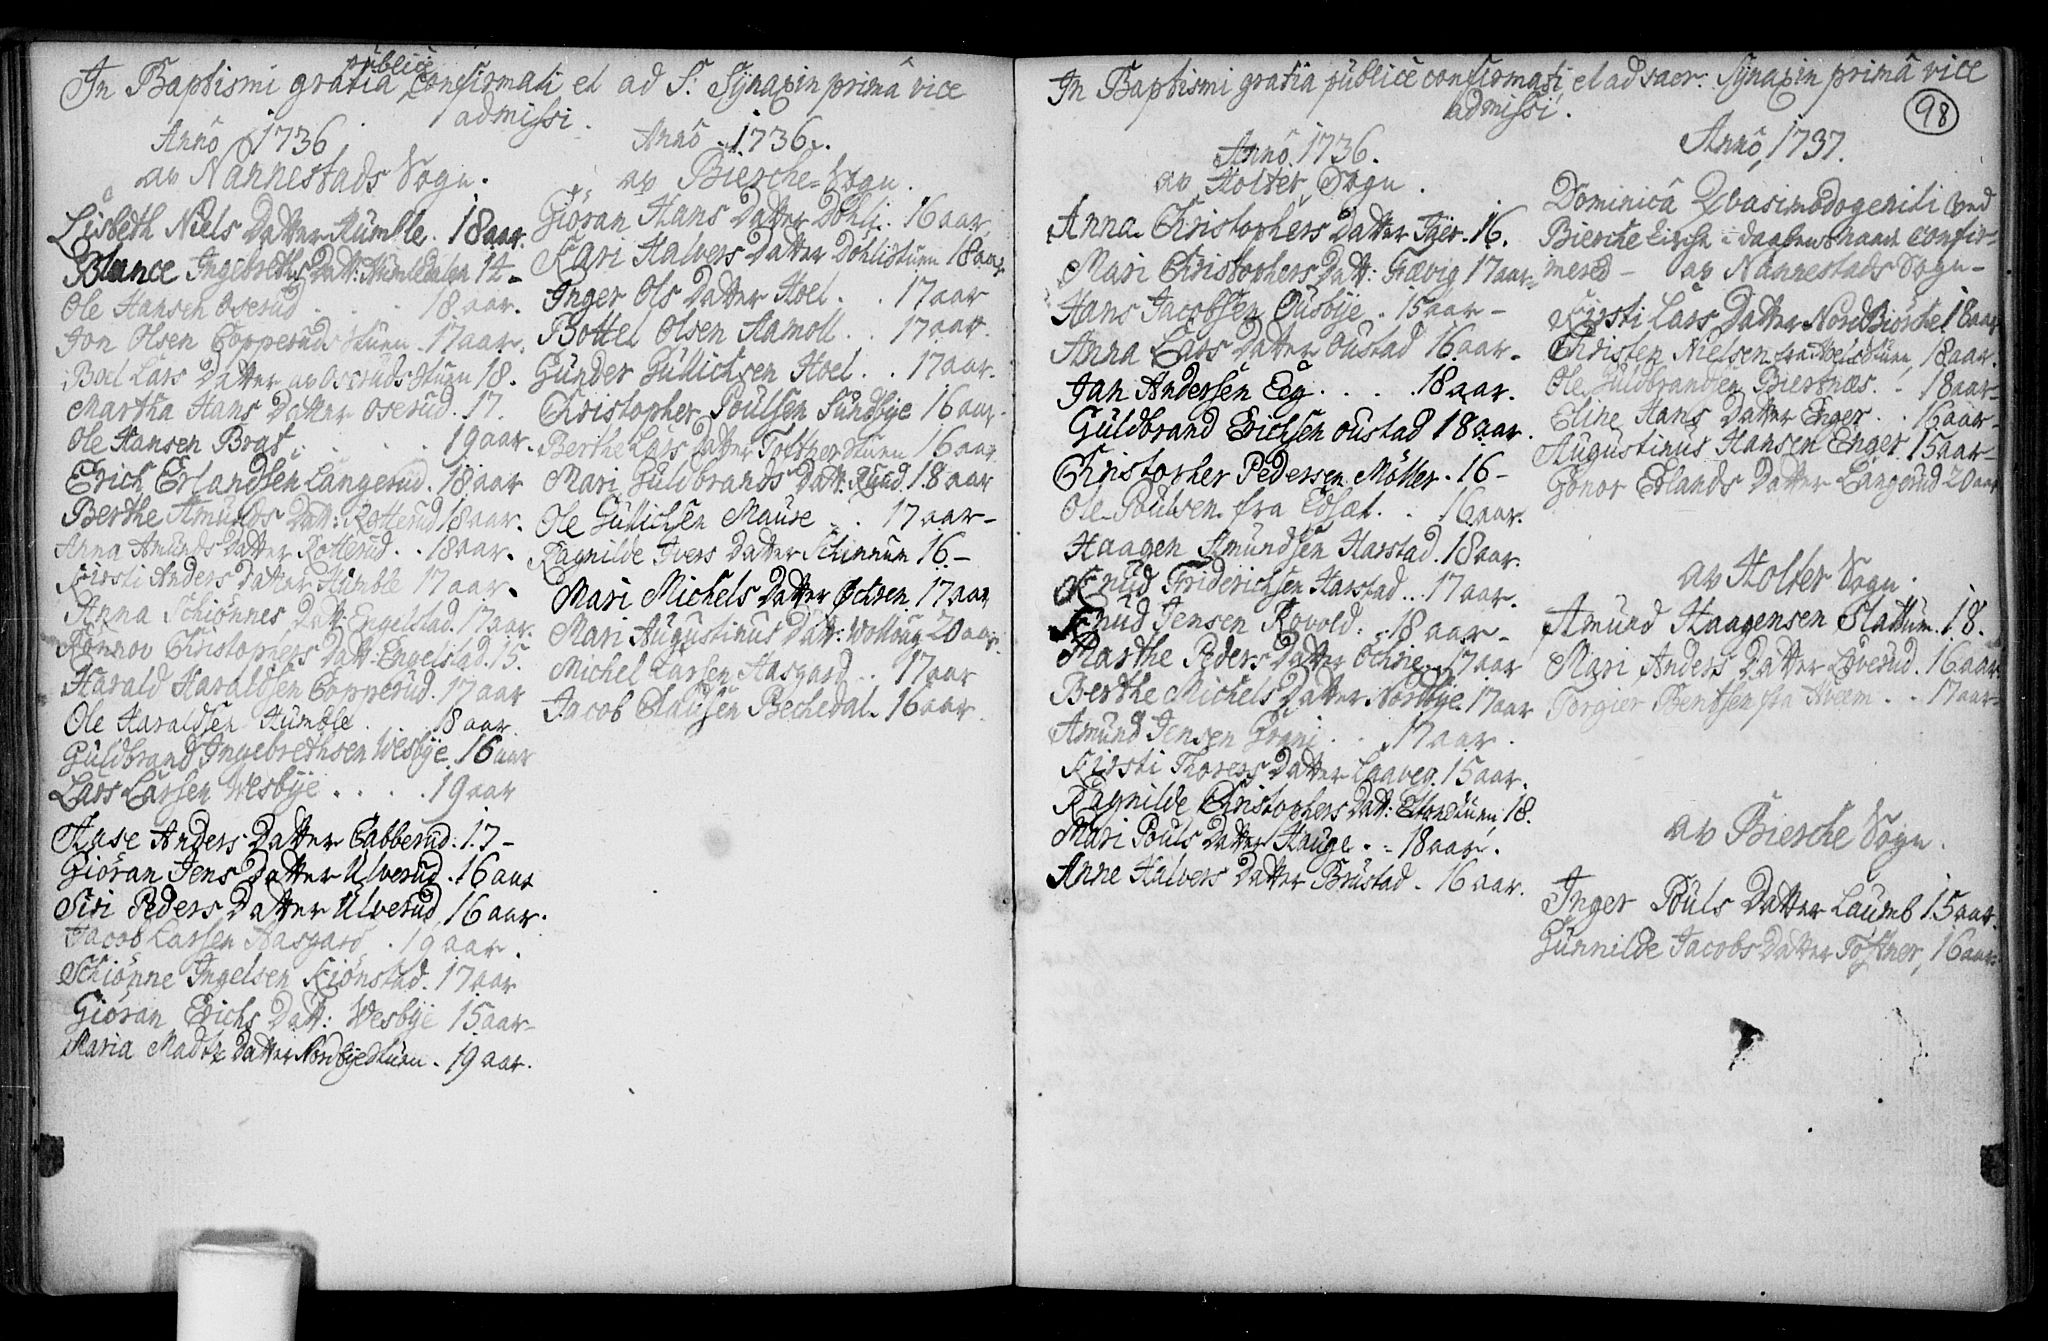 In Baptismi gratia publice confirmati et ad S. Synaxin primâ vice
admissi.
Annô 1736
av Nannestads Sogn.
Lisbeth Niels Datter Humble. 18 aar.
Blance Ingebreths Datt: Humledalen 14 -
Ole Hansen Oserud . . . 18. aar.
Jon Olsen Copperuds stuen. 17 aar.
Boel Lars Datter av Oseruds stuen 18.
Martha Hans Datter Oserud. 17.
Ole Hansen . . . 19 aar.
Erich Erlandsen Langerud. 18 aar
Berthe Amunds Datt: Rotterud 18 aar.
Anna Amunds Datter Rotterud . . 18 aar.
Kirsti Anders Datter Humble 17 aar.
Anna Schiönnes Datt: Engelstad. 17 aar.
Rönnov Christophers Datt: Engelstad. 15.
Harald Haraldsen Copperud. 17 aar
Ole Haraldsen Humble . . 18 aar.
Guldbrand Ingebrethsen Wesbÿe. 16 aar
Lars Larsen Wesbÿe . . . . 19 aar
Aase Anders Datter Cabberud: 17 -
Giöran Jens Datter Ulverud. 16 aar
Siri Peders Datter Ulverud 16 aar.
Jacob Larsen Aasgard . 19 aar.
Schiönne Ingelsen Kiönstad. 17 aar
Giöran Erichs Datt: Wesbÿe 15 aar -
Maria Madtz Datter Nordbÿestuen. 19 aar.
Annô 1736.
av Biercke Sogn.
Giöran Hans Datter Dohli. 16 aar,
Kari Halvers Datter Dohlistuen 18 aar
Inger Ols Datter Hoel . . 17 aar
Bottel Olsen Aamoll . . 17 aar.
Gunder Gullichsen Hoel . . 17 aar.
Christopher Poulsen Sundbÿe 16 aar.
Berthe Lars Datter stuen 16 aar
Mari Guldbrands Datt: Ruud. 18 aar
Ole Gullichsen Mause . . 17 aar -
Ragnilde Ivers Datter 16. -
Mari Michels Datter Ochren 17 aar
Mari Augustinus Datt: 20 aar.
Michel Larsen Aasgard . . 17 aar
Jacob Clausen Bechedal. 16 aar.
In Baptismi gratia publice confirmati, et ad sacr. Synaxin primâ vice
admissi.
98
Annô 1736.
av Holter Sogn.
Anna Christophers Datter Tÿer. 16.
Mari Christophers Datt: 17 aar.
Hans Jacobssen Ousbÿe . 15 aar -
Anna Lars Datter Oustad 16 aar.
Jan Andersen Eeg . . . . 18 aar.
Guldbrand Erichsen Oustad 18 aar.
Christopher Pedersen Möller. 16 -
Ole Poulsen fra . . 16 aar.
Haagen Amundsen Harstad. 18 aar.
Knud Friderichsen Harstad . . . 17 aar.
Knud Jensen Rovold . . 18 aar -
Marthe Peders Datter Ochrie . . 17 aar
Berthe Michels Datter Nordbÿe. 17 aar
Amund Jensen Grani . . . 17 aar.
Kirsti Thores Datter Laaveg. 15 aar.
Ragnilde Christophers Datt: 18.
Mari Pouls Datter Hauge . . 18 aar.
Anne Halvers Datter Brustad . 16 aar.
Annô 1737.
Dominicâ Qvasimodogeniti ved
Biercke kirche i daabens naade confir-
mered - av Nannestads Sogn -
Kirsti Lars Datter Nord Biercke 18 aar
Christen Nielsen fra stuen 18 aar.
Ole Guldbrandsen Biertnæs . . 18 aar -
Eline Hans Datter Enger . 16 aar -
Augustinus Hansen Enger 15 aar -
Gonor Erlands Datter Langerud 20 aar
av Holter Sogn.
Amund Haagensen Slattum. 18.
Mari Anders Datter Löverud. 16 aar.
Torgier Bentsen fra . . 17 aar -
av Biercke Sogn.
Inger Pouls Datter Laumb 15 aar.
Gunnilde Jacobs Datter Töftner, 16 aar.